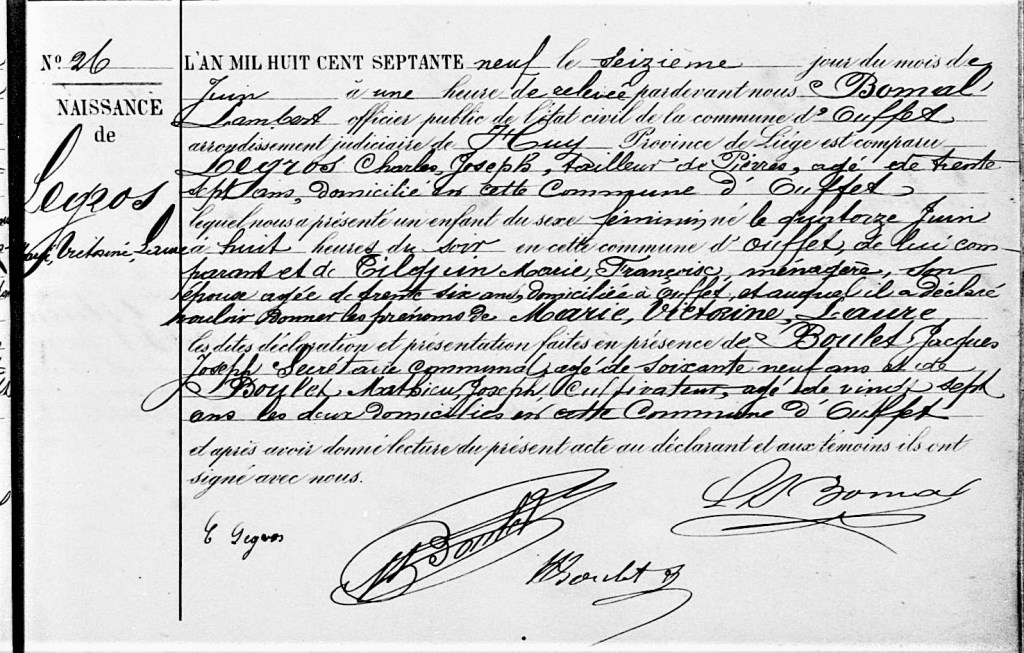 Nº 26
NAISSANCE
de
Legros
Marie, Victorine, Laure
L'AN MIL HUIT CENT SEPTANTE neuf le seizième jour du mois de
Juin à une heure de relevée pardevant nous Bomal
Lambert officier public de l'état civil de la commune d'Ouffet
arrondissement judiciaire de Huy Province de Liége est comparu
Legros Charles, Joseph, tailleur de Pierres, agé de trente
sept ans, domicilié en cette Commune d'Ouffet
lequel nous a présenté un enfant du sexe féminin, né le quatorze Juin
à huit heures du soir en cette commune d'Ouffet, de lui com-
parant et de Tilquin Marie, Françoise, ménagère, son
épouse agée de trente six ans, domiciliée à Ouffet, et auquel il a déclaré
vouloir donner les prénoms de Marie, Victorine, Laure,
les dites déclaration et présentation faites en présence de Boulet Jacques
Joseph Secrétaire Communal, agé de soixante neuf ans et de
Boulet, Mathieu, Joseph, Cultivateur, agé de vingt sept
ans les deux domiciliés en cette Commune d'Ouffet
et après avoir donné lecture du présent acte au déclarant et aux témoins ils ont
signé avec nous.
L Bomal
Legros
Boulet
Boulet